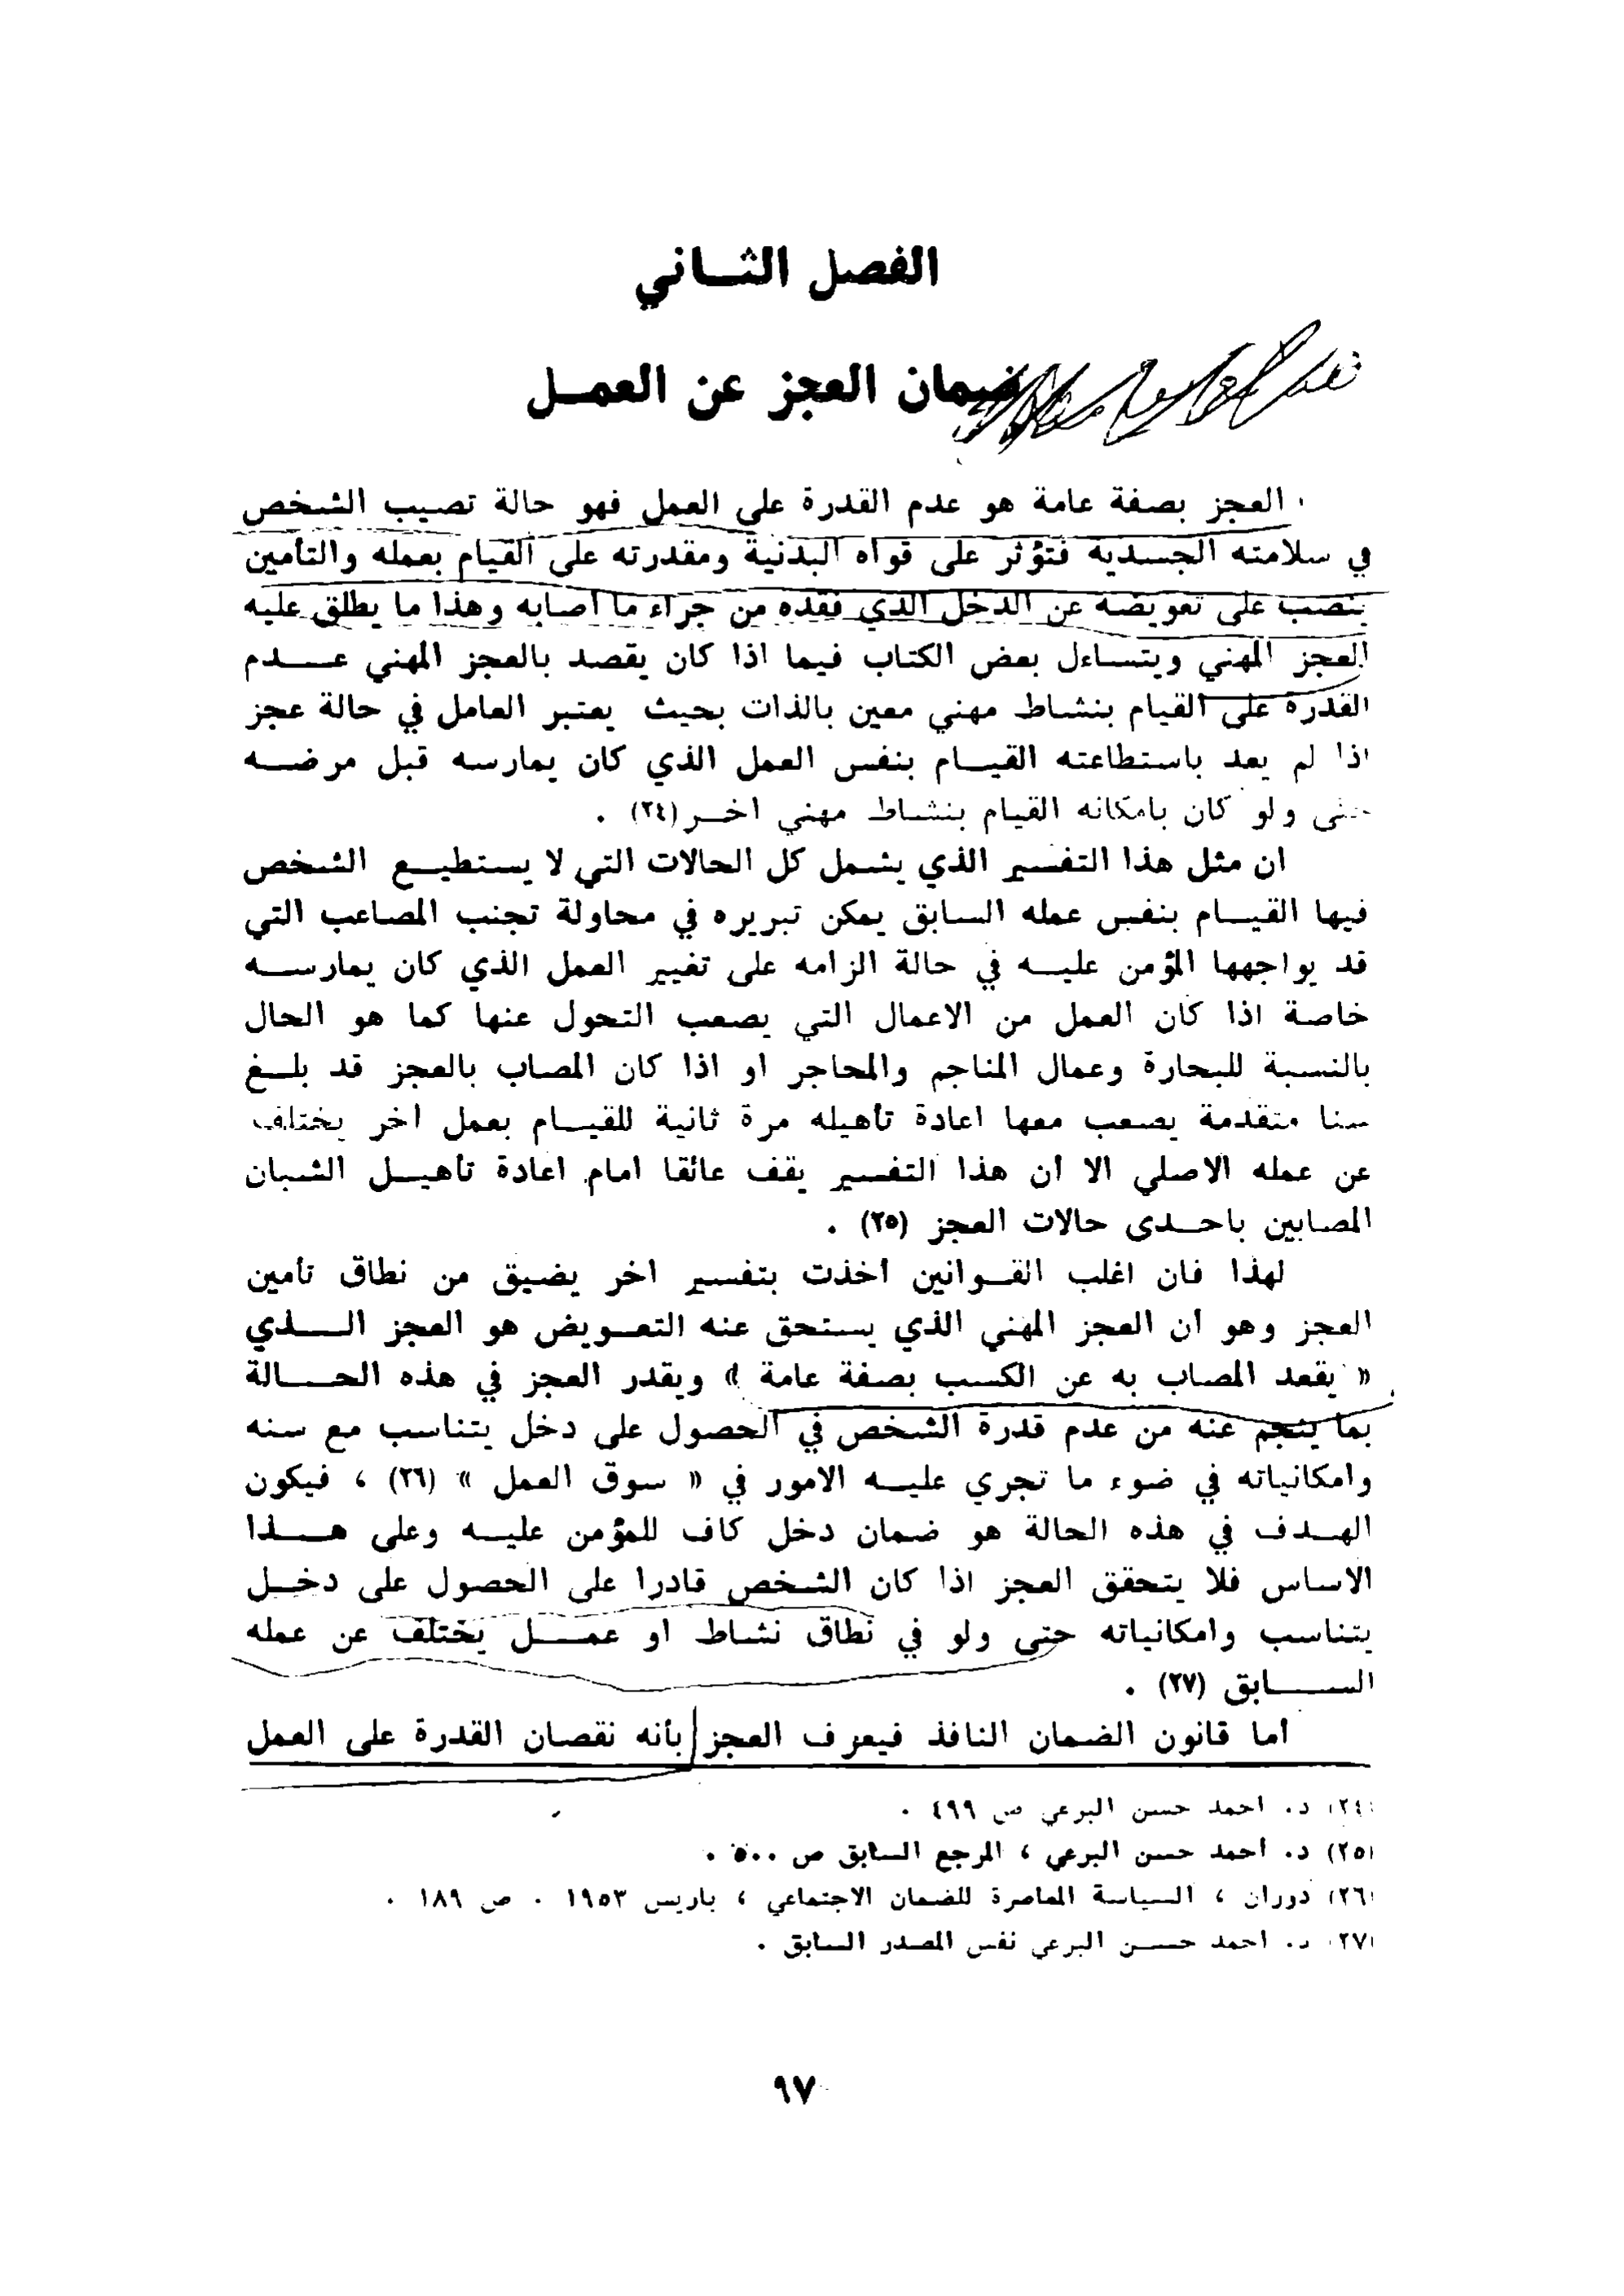 الفصل الثـــاني
ضمان العجز عن العمــل
العجز بصفة عامة هو عدم القدرة على العمل فهو حالة تصيب الشخص
في سلامته الجسدية فتؤثر على قواه البدنية ومقدرته على القيام بعمله والتأمين
ينصب على تعويضه عن الدخل الذي فقده من جراء ما أصابه وهذا ما يطلق عليه
العجز المهني ويتساءل بعض الكتاب فيما اذا كان يقصد بالعجز المهني عـــدم
القدرة على القيام بنشاط مهني معين بالذات بحيث يعتبر العامل في حالة عجز
اذا لم يعد باستطاعته القيــام بنفس العمل الذي كان يمارسه قبل مرضــه
حتى ولو كان بامكانه القيام بنشاط مهني اخــر (٢٤) .
ان مثل هذا التفسير الذي يشمل كل الحالات التي لا يستطيــع الشخص
فيها القيــام بنفس عمله السابق يمكن تبريره في محاولة تجنب المصاعب التي
قد يواجهها المؤمن عليــه في حالة الزامه على تغيير العمل الذي كان يمارســه
خاصة اذا كان العمل من الاعمال التي يصعب التحول عنها كما هو الحال
بالنسبة للبحارة وعمال المناجم والمحاجر او اذا كان المصاب بالعجز قد بلــغ
سنا متقدمة يصعب معها اعادة تأهيله مرة ثانية للقيــام بعمل اخر يختلف
عن عمله الاصلي الا ان هذا التفسير يقف عائقا امام اعادة تأهيــل الشبان
المصابين باحــدى حالات العجز (٢٥) .
لهذا فان اغلب القــوانين أخذت بتفسير اخر يضيق من نطاق تأمين
العجز وهو ان العجز المهني الذي يستحق عنه التعــويض هو العجز الــــذي
« يقعد المصاب به عن الكسب بصفة عامة » ويقدر العجز في هذه الحـــالة
بما ينجم عنه من عدم قدرة الشخص في الحصول على دخل يتناسب مع سنه
وامكانياته في ضوء ما تجري عليــه الامور في « سوق العمل » (٢٦) ، فيكون
الهــدف في هذه الحالة هو ضمان دخل كاف للمؤمن عليــه وعلى هــــذا
الاساس فلا يتحقق العجز اذا كان الشخص قادرا على الحصول على دخــل
يتناسب وامكانياته حتى ولو في نطاق نشاط او عمـــل يختلف عن عمله
الســـــابق (٢٧) .
أما قانون الضمان النافذ فيعرف العجز بأنه نقصان القدرة على العمل
(٢٤) د. احمد حسن البرعي ص ٤٩٩ .
(٢٥) د. احمد حسن البرعي ، المرجع السابق ص ٥٠٠ .
(٢٦) دوران ، السياسة المعاصرة للضمان الاجتماعي ، باريس ١٩٥٣ . ص ١٨٩ .
(٢٧) د. احمد حســن البرعي نفس المصدر السابق .
٩٧